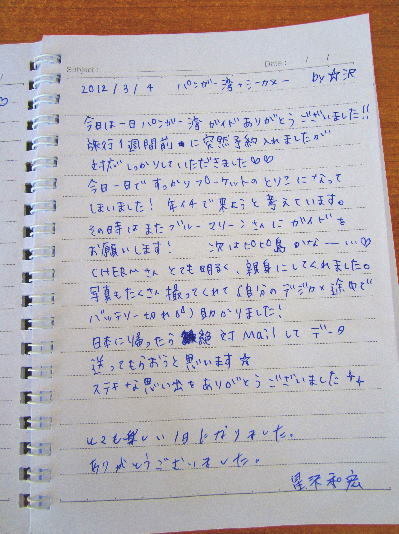 Subject: Date: / /
2012/3/4 パンガー湾・シーカヌー by ☆沢
今日は一日パンガー湾ガイドありがとうございました!!
旅行1週間前に突然予約入れましたが
対応しっかりしていただきました♡♡
今日一日ですっかりプーケットのとりこになって
しまいました! 年イチで来ようと考えています。
その時はまたブルーマリーンさんにガイドを
お願いします! 次はピピ島かな……♡
CHERMさんとても明るく、親身にしてくれました。
写真もたくさん撮ってくれて(自分のデジカメ途中で
バッテリー切れ)助かりました!
日本に帰ったら絶対Mailしてデータ
送ってもらおうと思います☆
ステキな思い出をありがとうございました
とても楽しい1日になりました。
ありがとうございました。
星沢和宏